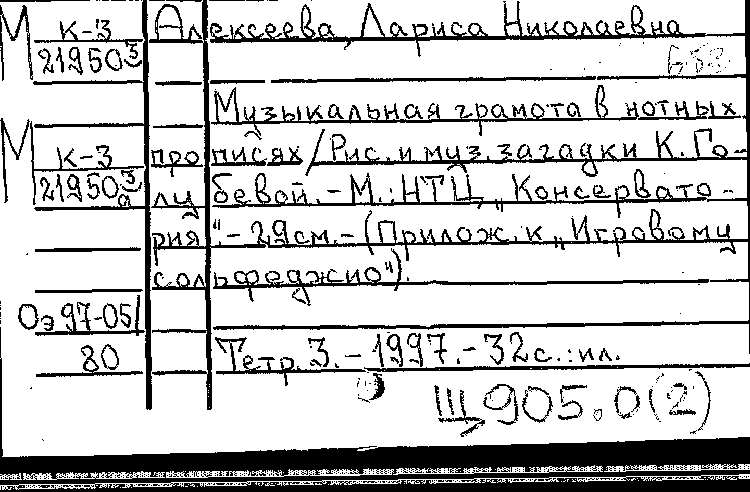 М К-3 Алексеева, Лариса Николаевна
219503
Музыкальная грамота в нотных
М К-3 прописях/Рис. и муз. загадки К. Го-
219503а лубевой. - М.: НТЦ „Консервато-
рия“. - 29 см. - (Прилож. к „Игровому
сольфеджио“).
Оэ 97-05/
80 Тетр. 3. - 1997. - 32 с.: ил.
Щ905.0(2)